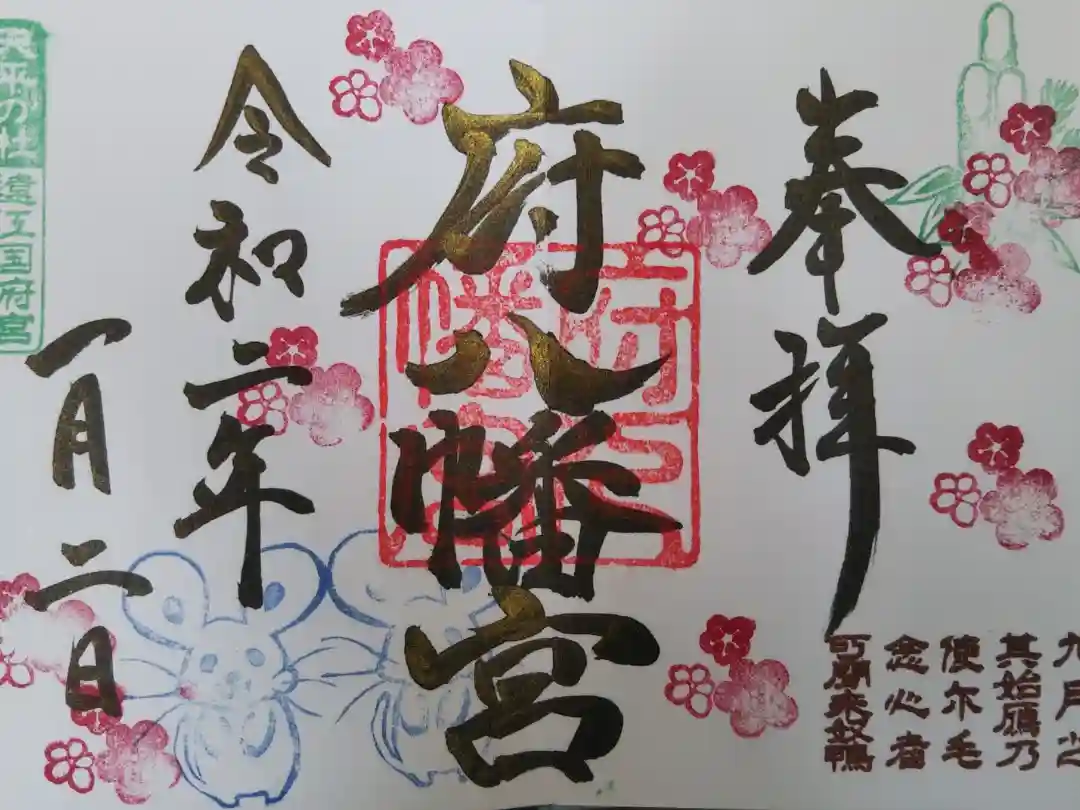 奉拝
九月之
其始鴈乃
使尓毛
念心者
可聞来奴鴨
府八幡宮
府八
幡宮
令和二年
一月二日
天平の杜 遠江国府宮